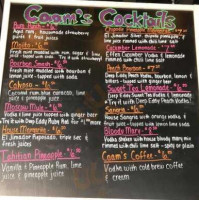 Caam's Cocktails
Rum Punch - $6
Aged rum, housemade strawberry
Mojito - $6
Fresh mint muddled with rum, sugar & lime
Bourbon Smash - $6
Fresh mint muddled with bourbon &
lemon juice - topped with soda
Calypso - $6
Coconut rum, blue curacao, lime
juice & pineapple juice
Moscow Mule - $6
Vodka & lime juice topped with ginger beer
Try it with Deep Eddy Ruby Red for
House Margarita - $6
El Jimador Reposado, triple sec &
fresh juices
Tahitian Pineapple
Vanilla & Pineapple Rum, lime
& pineapple juice
El Jimador Silver, jalapeño pineapple &
lime juice rimmed with chili lime salt
Cucumber Lemonade - $7
Effen Cucumber Vodka & lemonade
rimmed with chili lime salt
Deep Eddy Peach Vodka, bourbon, lemon &
topped with ginger beer
Sweet Tea Lemonade - $6
Deep Eddy Sweet Tea Vodka & lemonade
Try it with Deep Eddy Peach Vodka
Sangria - $6
House Sangria with orange vodka, &
fruit juices, topped with lemon lime soda
Bloody Mary - $8
Vodka shaken with house bloody mary mix
rimmed with chili lime salt - spicy or plain
Caam's Coffee - $6
Vodka with cold brew coffee
& cream